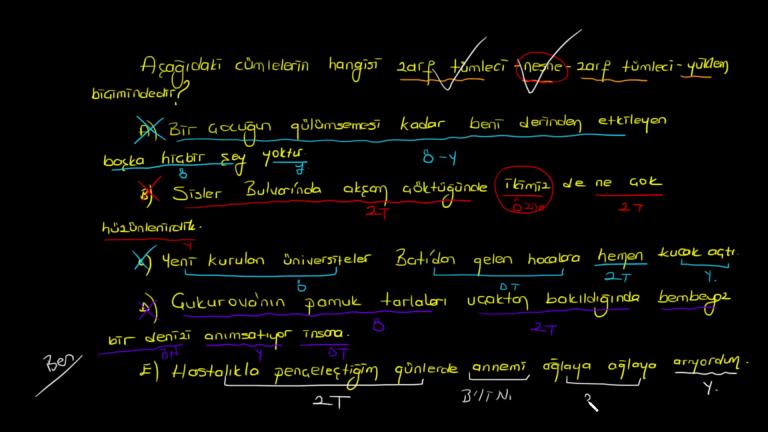 Aşağıdaki cümlelerin hangisi zarf tümleci - nesne - zarf tümleci - yüklem
biçimindedir?
A) Bir çocuğun gülümsemesi kadar beni derinden etkileyen
başka hiçbir şey yoktur.
Ö Y Ö-Y
B) Sisler Bulvarı'nda akşam çöktüğünde ikimiz de ne çok
ZT Özne ZT
hüzünlenirdik.
Y
C) Yeni kurulan üniversiteler Batı'dan gelen hocalara hemen kucak açtı.
Ö DT ZT Y.
D) Çukurova'nın pamuk tarlaları uçaktan bakıldığında bembeyaz
Ö ZT
bir denizi anımsatıyor insana.
BN Y DT
Ben
E) Hastalıkla pençeleştiğim günlerde annemi ağlaya ağlaya arıyordum.
ZT B'li N. Y.